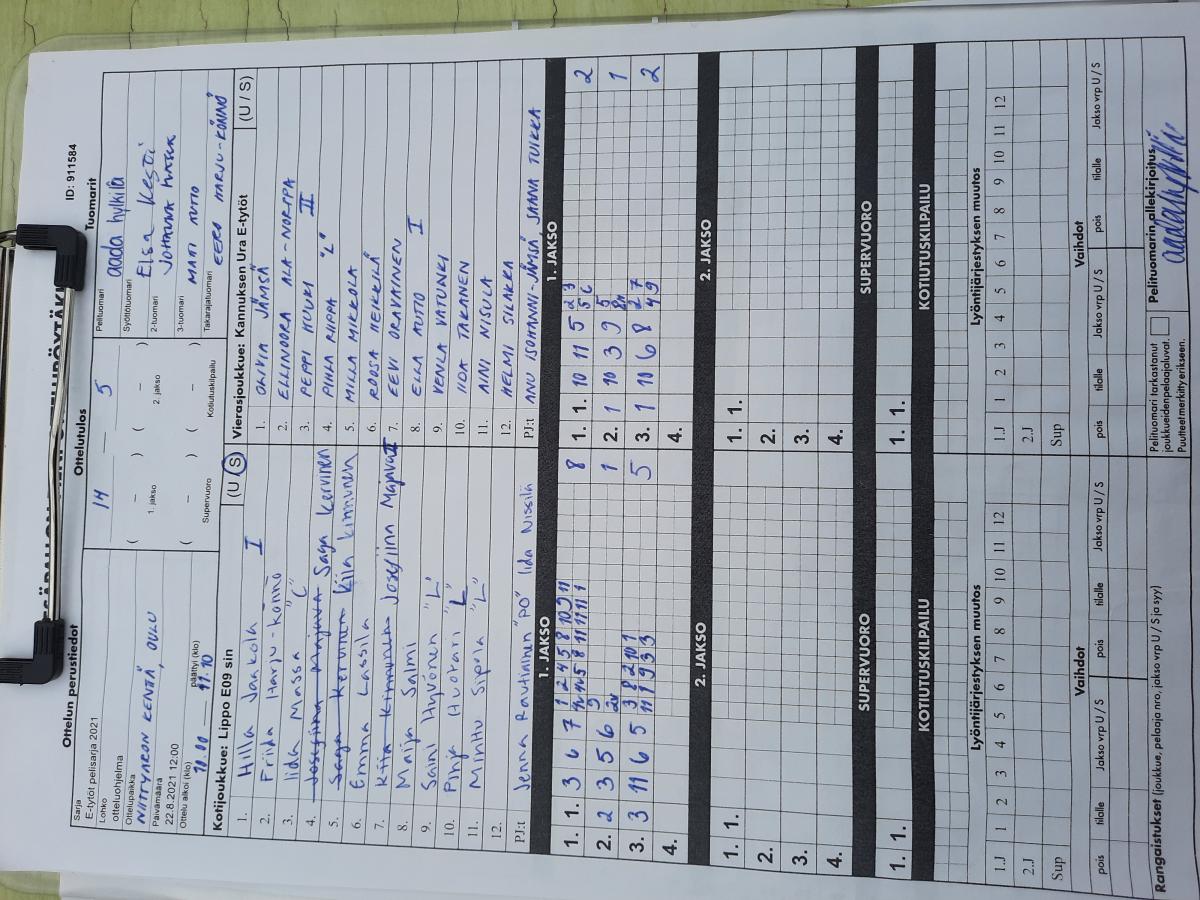 ID: 911584
Ottelun perustiedot
Sarja
E-tytöt pelisarja 2021
Lohko
otteluohjelma
Ottelupaikka
NIITTYARON KENTÄ, OULU
Päivämäärä
22.8.2021 12:00
Ottelu alkoi (klo)
päättyi (klo)
Ottelutulos
14 — 5
( – ) ( – )
1. jakso
2. jakso
( – ) ( – )
Supervuoro
Kotiutuskilpailu
Tuomarit
Pelituomari
aada hylkilä
Syöttötuomari
Elsa Kesti
2-tuomari
JOHANNA
3-tuomari
MATTI AUTIO
Takarajatuomari
EERO HARJU-KÖNNÖ
Kotijoukkue: Lippo E09 sin
(U / S)
1. Hilla Jaakola I
2. Friida Harju-Könnö
3. Iida Massa "C"
4. Josefiina Majava Saga Kervinen
5. Saga Kervinen Kiia Kinnunen
6. Emma Lassila
7. Kiia Kinnunen Josefiina Majava II
8. Maija Salmi
9. Saini Hyvönen "L"
10. Pinja Huovari "L"
11. Minttu Sipola "L"
12.
PJ:t Jenna Rautiainen "PO" Iida Nissilä
Vierasjoukkue: Kannuksen Ura E-tytöt
(U / S)
1. OLIVIA JÄMSÄ
2. ELLINOORA ALA-NORPPA
3. PEPPI HUUKI II
4. PIHLA RIIPPA "L"
5. MILLA MIKKOLA
6. ROOSA HEIKKILÄ
7. EEVI ORAVAINEN
8. ELLA AUTIO I
9. VENLA VATUNKI
10. IIDA TAKANEN
11. AINI NISULA
12. HELMI SILAKKA
PJ:t ANU ISOHANNI-JÄMSÄ, SANNA TUIKKA
1. JAKSO
1. 1. 3 6 7 8
2. 2 3 5 6 1
3. 3 11 6 5 5
4.
1. JAKSO
1. 1. 10 11 5 2
2. 1 10 3 9 1
3. 1 11 6 8 2
4.
2. JAKSO
1. 1.
2.
3.
4.
2. JAKSO
1. 1.
2.
3.
4.
SUPERVUORO
1. 1.
SUPERVUORO
1. 1.
KOTIUTUSKILPAILU
KOTIUTUSKILPAILU
Lyöntijärjestyksen muutos
1.J 1 2 3 4 5 6 7 8 9 10 11 12
2.J
Sup
Lyöntijärjestyksen muutos
1.J 1 2 3 4 5 6 7 8 9 10 11 12
2.J
Sup
Vaihdot
pois tilalle Jakso vrp U / S pois tilalle Jakso vrp U / S
Vaihdot
pois tilalle Jakso vrp U / S pois tilalle Jakso vrp U / S
Rangaistukset (joukkue, pelaaja nro, jakso vrp U / S ja syy)
Pelituomari tarkastanut
joukkueidenpelaajaluvat.
Puutteet merkitty erikseen.
Pelituomarin allekirjoitus